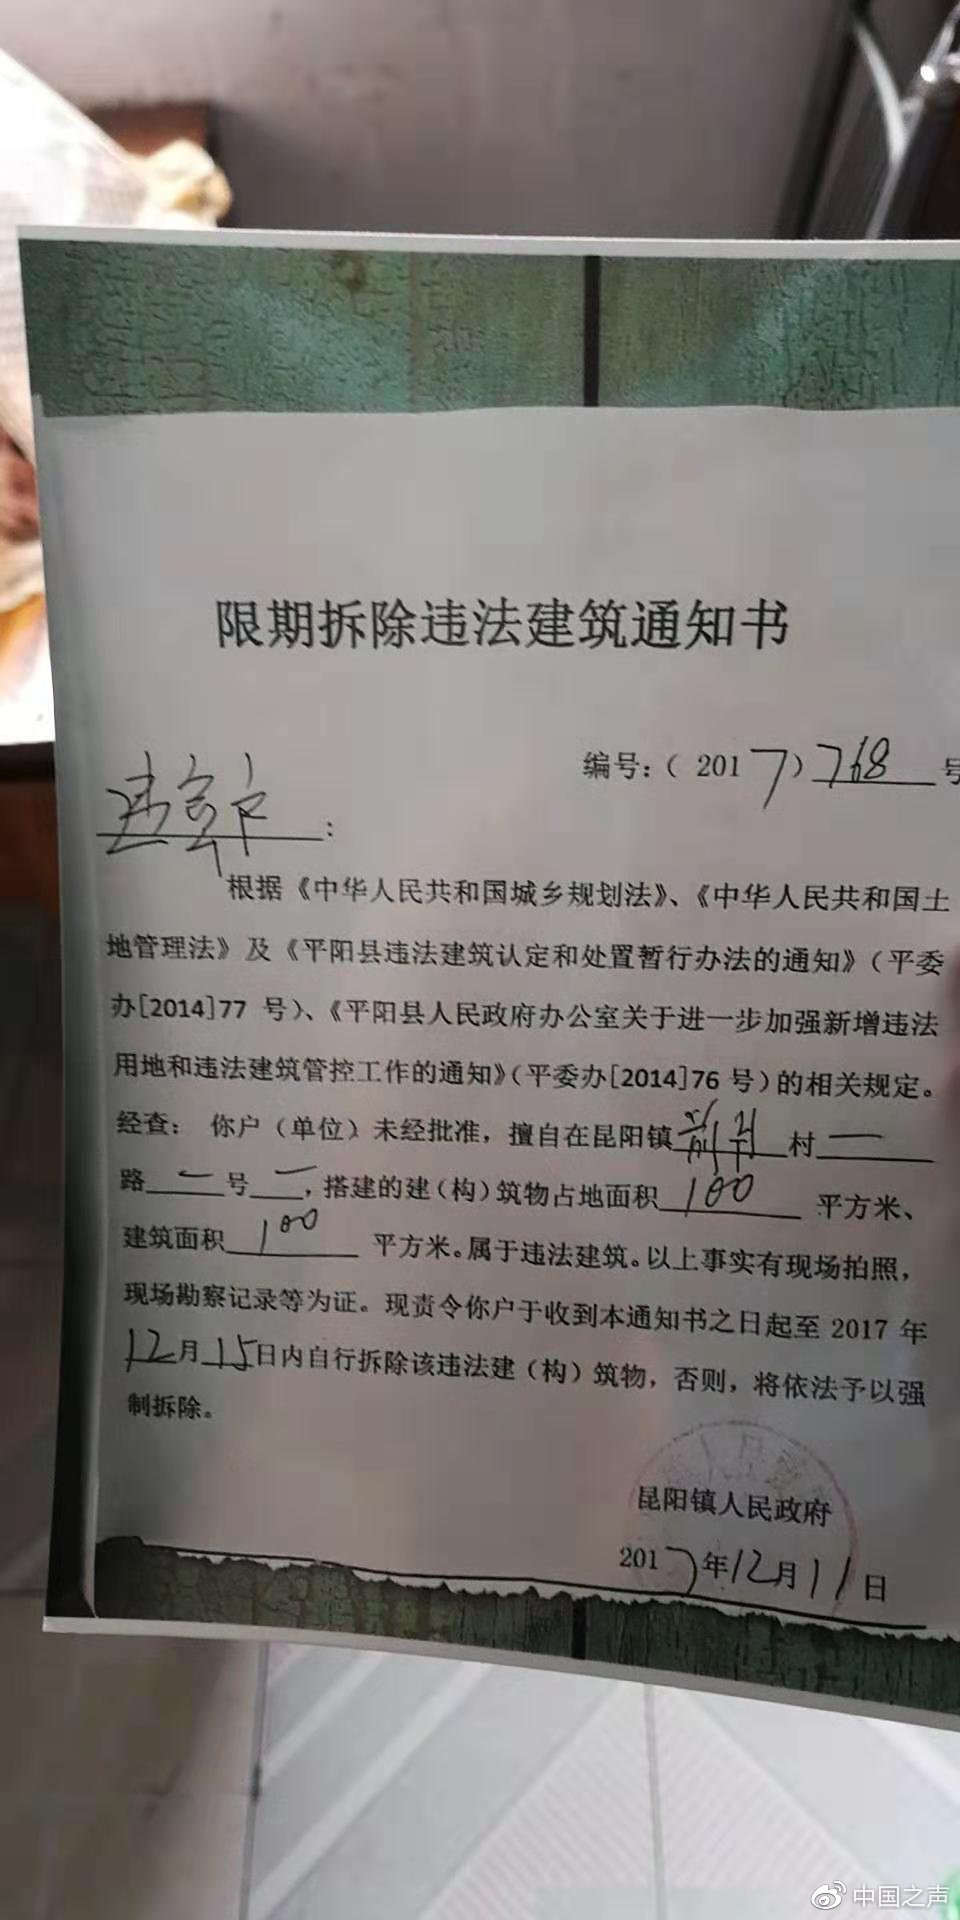 限期拆除违法建筑通知书
编号:(2017)768号
违章户:
根据《中华人民共和国城乡规划法》、《中华人民共和国土
地管理法》及《平阳县违法建筑认定和处置暂行办法的通知》(平委
办[2014]77 号)、《平阳县人民政府办公室关于进一步加强新增违法
用地和违法建筑管控工作的通知》(平委办[2014]76 号)的相关规定。
经查: 你户(单位)未经批准,擅自在昆阳镇 村一
路一号一,搭建的建(构)筑物占地面积100平方米、
建筑面积100平方米。属于违法建筑。以上事实有现场拍照,
现场勘察记录等为证。现责令你户于收到本通知书之日起至 2017 年
12月15日内自行拆除该违法建(构)筑物,否则,将依法予以强
制拆除。
昆阳镇人民政府
2017年12月11日
中国之声